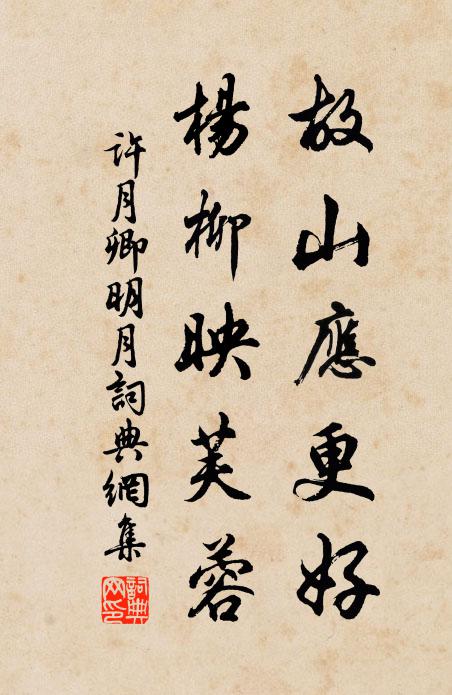 故山應更好
楊柳映芙蓉
許月卿明月詞典網集
詞典網印